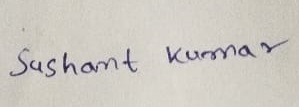 Sushant Kumar